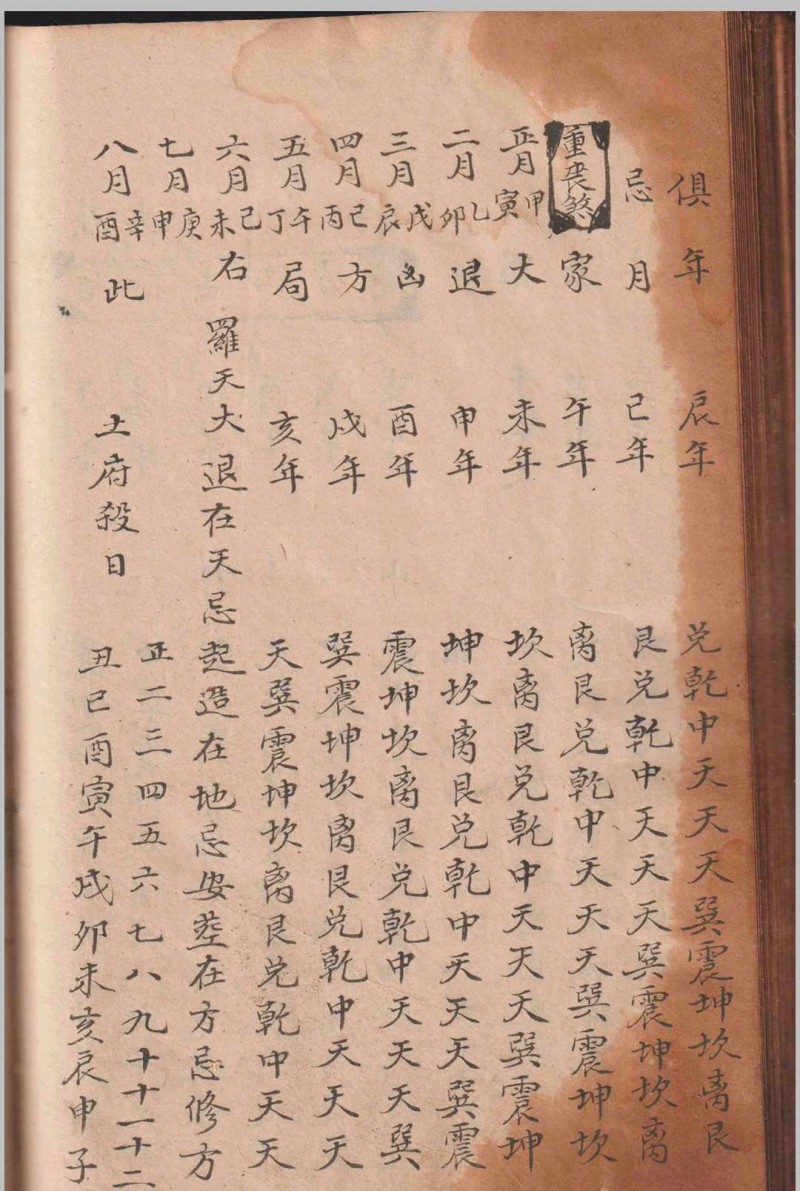 俱年 辰年 兌乾中天天天巽震坤坎离艮
忌月 巳年 艮兌乾中天天天巽震坤坎离
重喪煞 家 午年 离艮兌乾中天天天巽震坤坎
正月 甲寅 大 未年 坎离艮兌乾中天天天巽震坤
二月 乙卯 退 申年 坤坎离艮兌乾中天天天巽震
三月 戊辰 凶 酉年 震坤坎离艮兌乾中天天天巽
四月 巳丙 方 戌年 巽震坤坎离艮兌乾中天天天
五月 午丁 局 亥年 天巽震坤坎离艮兌乾中天天
六月 己未 右羅天大退在天忌起造在地忌安葬在方忌修方
七月 庚申 正二三四五六七八九十十一十二
八月 辛酉 此 土府殺日 丑巳酉寅午戌卯未亥辰申子